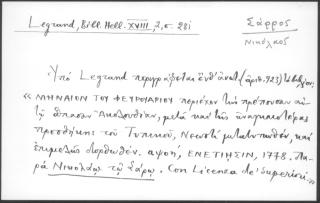 Legrand, Bill. Hell. XVIII, 2, σ. 281
Σάρρος
Νικόλαος
Ὑπὸ Legrand περιγράφεται ὑπ' ἀριθ. 923
«ΜΗΝΑΙΟΝ ΤΟΥ ΦΕΥΡΟΥΑΡΙΟΥ περιέχον τὴν πρέπουσαν αὐ-
τῷ ἅπασαν Ἀκολουθίαν, μετὰ καὶ τῆς ἀναγκαιοτέρας
προσθήκης τοῦ Τυπικοῦ, Νεωστὶ μετατυπωθέν, καὶ
ἐπιμελῶς διορθωθέν. αψοή, ΕΝΕΤΙΗΣΙΝ, 1778. Πα-
ρὰ Νικολάῳ τῷ Σάρῳ. Con Licenza de' Superiori.»